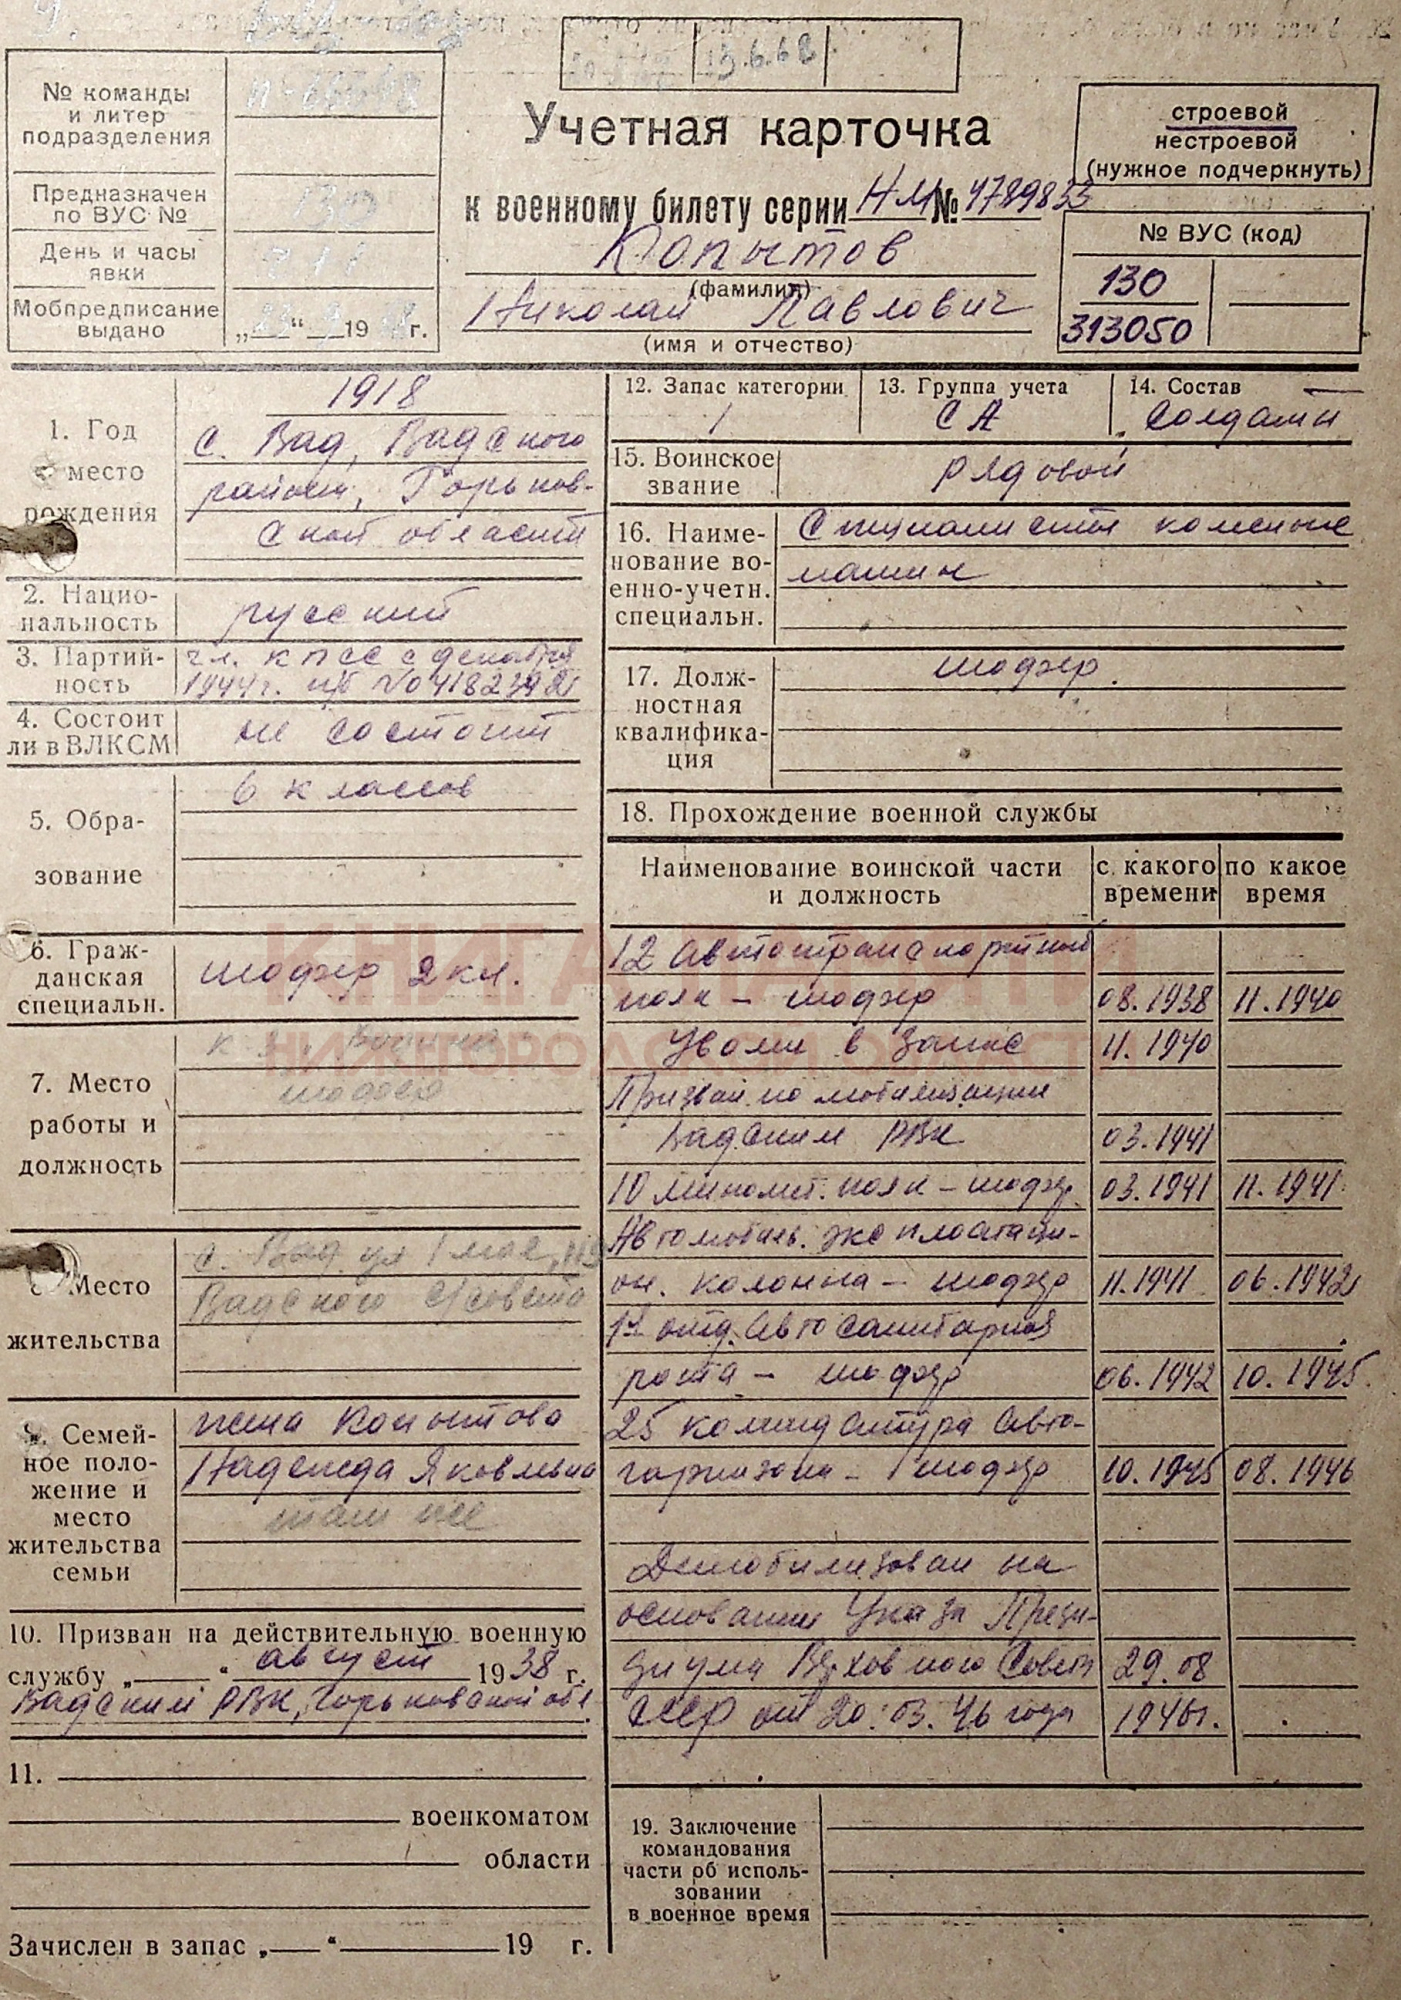 13.6.68
№ команды
и литер
подразделения
Предназначен
по ВУС №
130
День и часы
явки
Мобпредписание
выдано
„ “ 19 г.
Учетная карточка
к военному билету серии НМ № 4789833
Копытов
(фамилия)
Николай Павлович
(имя и отчество)
строевой
нестроевой
(нужное подчеркнуть)
№ ВУС (код)
130
313050
1. Год
место
рождения
1918
с. Вад, Вадского
района, Горьков-
ской области
2. Нацио-
нальность
русский
3. Партий-
ность
чл. КПСС с декабря
1944 г. п/б №
4. Состоит
ли в ВЛКСМ
не состоит
5. Обра-
зование
6 классов
6. Граж-
данская
специальн.
шофер 2 кл.
7. Место
работы и
должность
шофер
Место
жительства
с. Вад ул 1 мая,
Вадского с/совета
9. Семей-
ное поло-
жение и
место
жительства
семьи
жена Копытова
Надежда Яковлевна
там же
10. Призван на действительную военную
службу „ “ август 1938 г.
Вадским РВК, Горьковской обл.
11.
военкоматом
области
Зачислен в запас „ “ 19 г.
12. Запас категории
1
13. Группа учета
СА
14. Состав
Солдаты
15. Воинское
звание
рядовой
16. Наиме-
нование во-
енно-учетн.
специальн.
Специалисты колесных
машин
17. Долж-
ностная
квалифика-
ция
шофер.
18. Прохождение военной службы
Наименование воинской части
и должность
с какого
времени
по какое
время
12 Автотранспортный
полк – шофер 08.1938 11.1940
Уволен в запас 11.1940
Призван по мобилизации
Вадским РВК 03.1941
10 миномет. полк – шофер 03.1941 11.1941
Автомобиль. эксплоатаци-
он. колонна – шофер 11.1941 06.1942
отд. Авто санитарная
рота – шофер 06.1942 10.1945
25 комендатура Авто-
гарнизона – шофер 10.1945 08.1946
Демобилизован на
основании Указа Прези-
диума Верховного Совета 29.08
СССР от 20.03.46 года 1946г.
19. Заключение
командования
части об исполь-
зовании
в военное время
КНИГА ПАМЯТИ
НИЖЕГОРОДСКОЙ ОБЛАСТИ